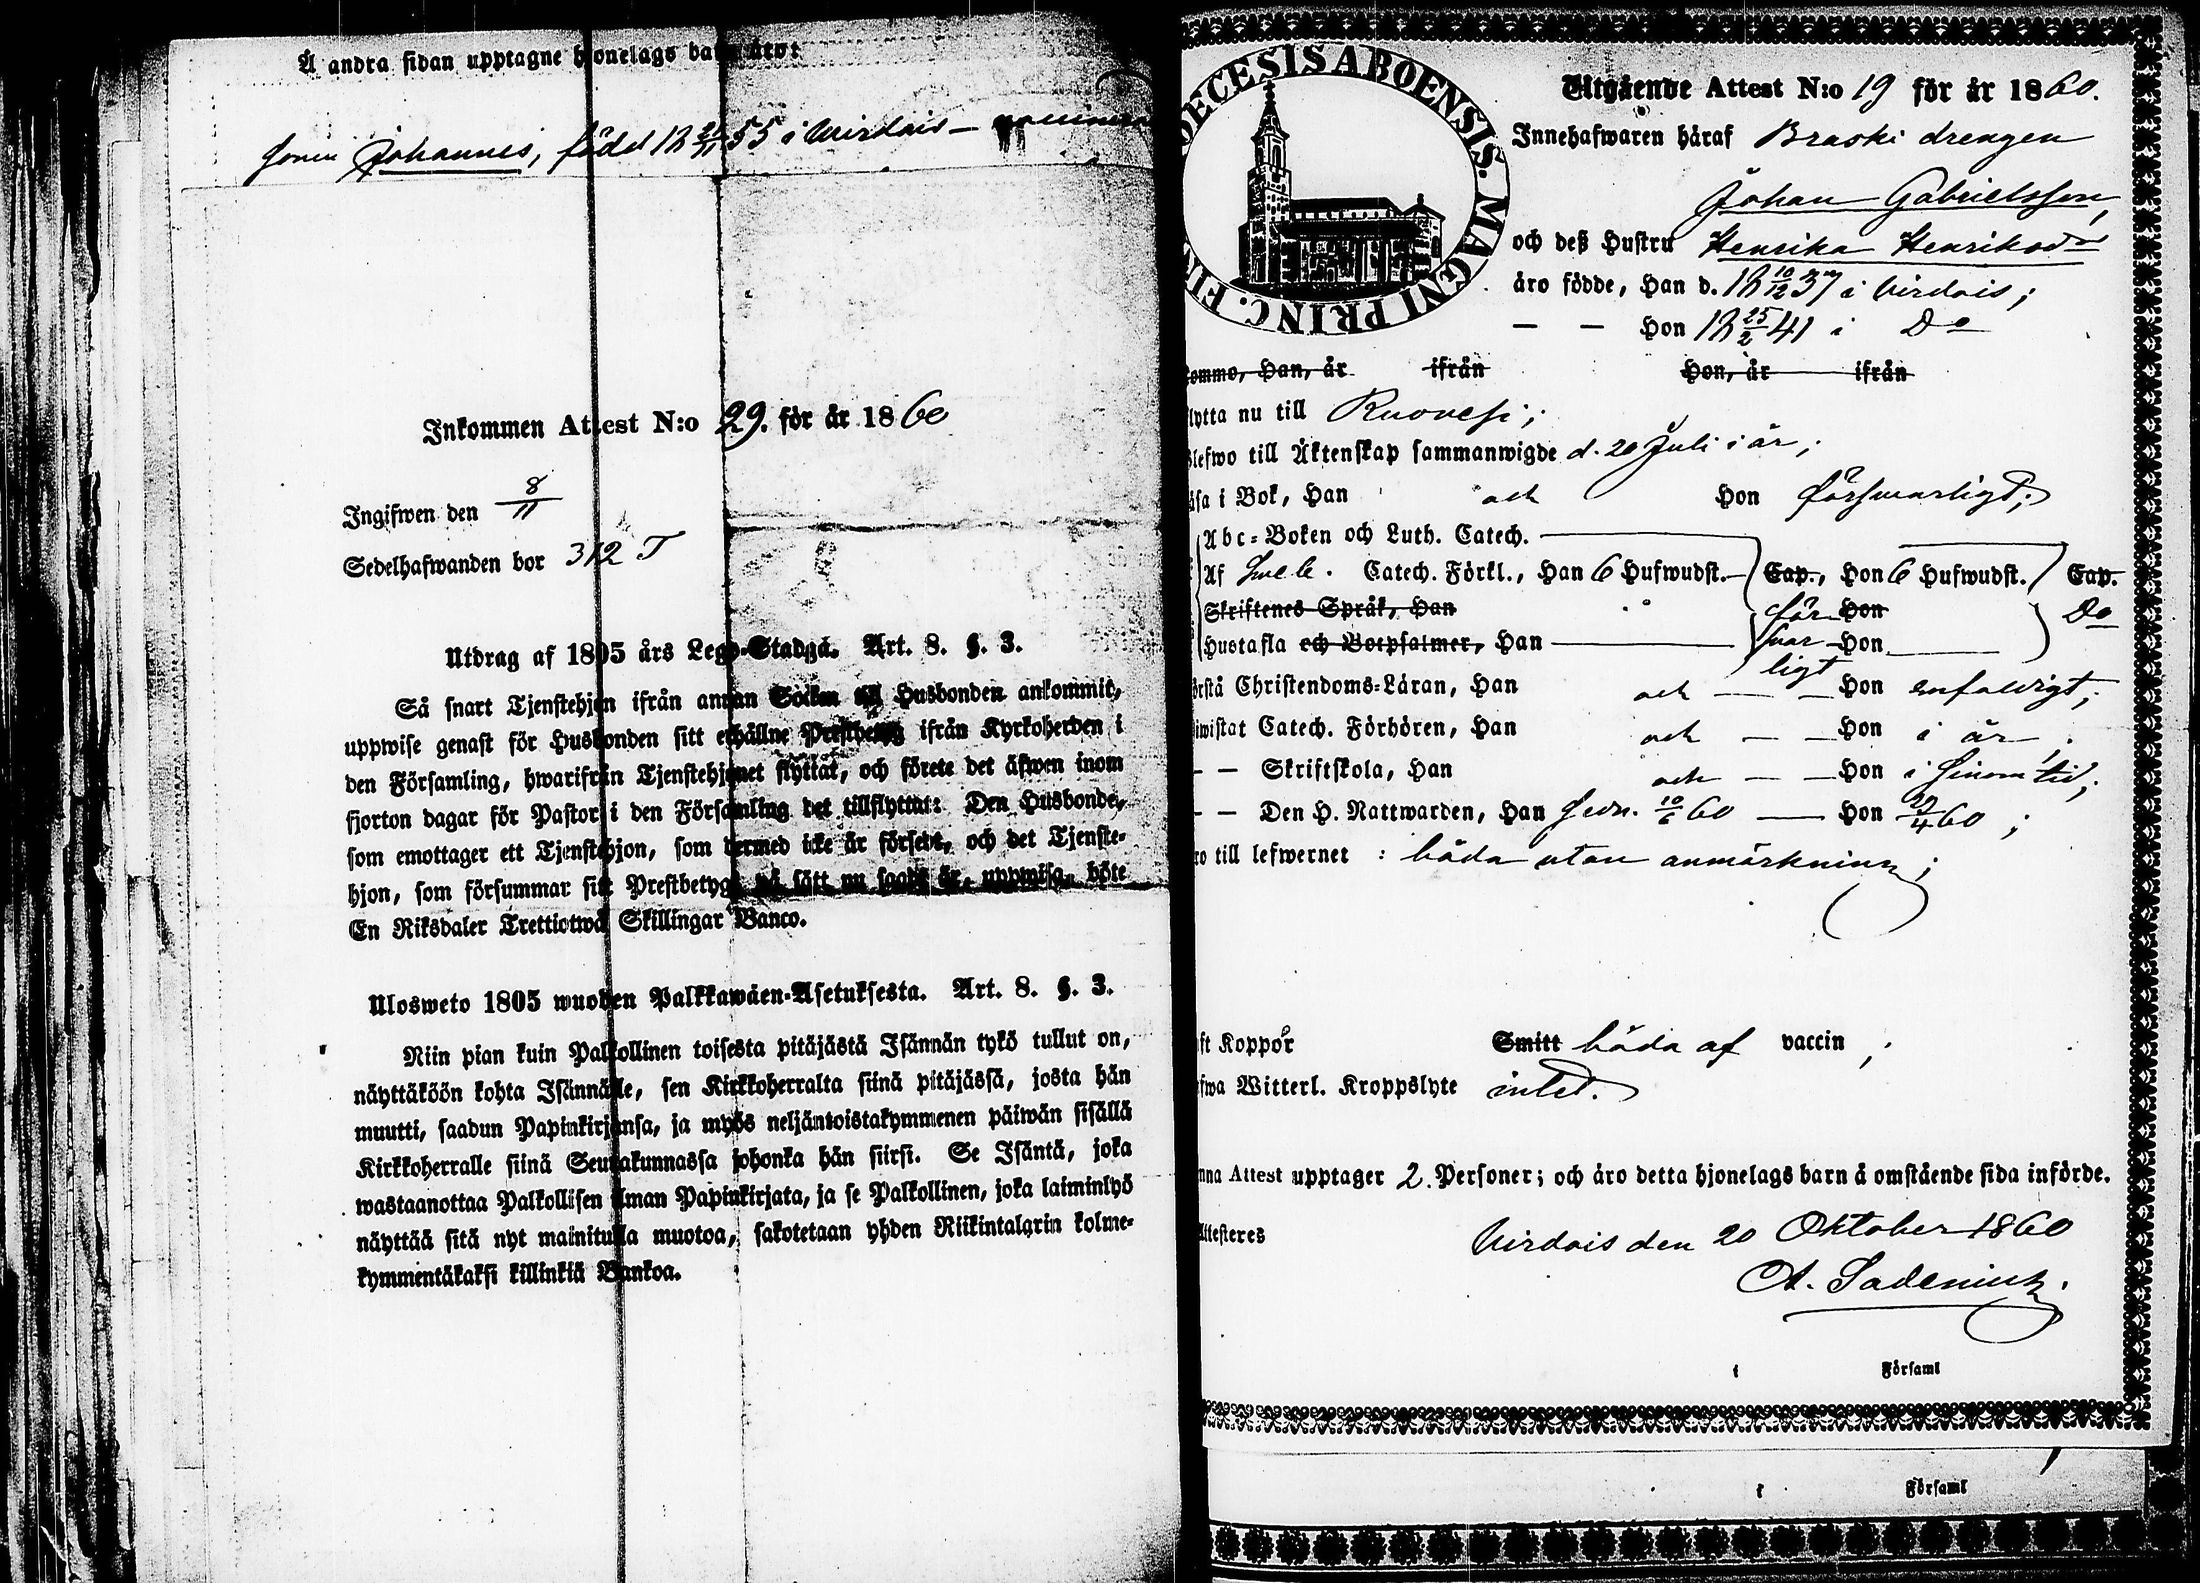 Å andra sidan upptagne hjonelags barn äro:
Sonen Johannes, född 18 21/11 55 i Wirdois –
Inkommen Attest N:o 29. för år 1860
Ingifwen den 8/11
Sedelhafwanden bor 312 T
Utdrag af 1805 års Lego-Stadga. Art. 8. §. 3.
Så snart Tjenstehjon ifrån annan Socken till Husbonden ankommit,
uppwise genast för Husbonden sitt erhållne Prestbetyg ifrån Kyrkoherden i
den Församling, hwarifrån Tjenstehjonet flyttat, och förete det äfwen inom
fjorton dagar för Pastor i den Församling det tillflyttat: Den Husbonde,
som emottager ett Tjenstehjon, som dermed icke är försedt, och det Tjenste-
hjon, som försummar sitt Prestbetyg, på sätt nu sagdt är, uppwisa, böte
En Riksdaler Trettiotwå Skillingar Banco.
Ulosweto 1805 wuoden Palkkawäen-Asetuksesta. Art. 8. §. 3.
Niin pian kuin Palkollinen toisesta pitäjästä Isännän tykö tullut on,
näyttäköön kohta Isännälle, sen Kirkkoherralta siinä pitäjässä, josta hän
muutti, saadun Papinkirjansa, ja myös neljäntoistakymmenen päiwän sisällä
Kirkkoherralle siinä Seurakunnassa johonka hän siirsi. Se Isäntä, joka
wastaanottaa Palkollisen ilman Papinkirjata, ja se Palkollinen, joka laiminlyö
näyttää sitä nyt mainitulla muotoa, sakotetaan yhden Riikintalarin kolme-
kymmentäkaksi killinkiä Bankoa.
DECESIS ABOENSIS. MAGNI PRINC. FIN
Utgående Attest N:o 19 för år 1860.
Innehafwaren häraf Braski drengen
Johan Gabrielsson,
och deß Hustru Henrika Henriksdr
äro födde, Han d. 18 10/12 37 i Virdois;
– – Hon 18 25/2 41 i Do
kommo, Han, år ifrån Hon, år ifrån
flytta nu till Ruovesi;
blefwo till Äktenskap sammanwigde d. 20 Juli i år;
läsa i Bok, Han och Hon försvarligt;
Abc-Boken och Luth. Catech.
Af Catech. Förkl., Han 6 Hufwudst. Cap., Hon 6 Hufwudst. Cap.
Skriftenes Språk, Han för Hon Do
Hustafla och Botpsalmer, Han svar Hon
ligt
förstå Christendoms-Läran, Han och – – Hon enfaldigt;
biwistat Catech. Förhören, Han och – – Hon i år
– – Skriftskola, Han och – – Hon i sinom tid;
– – Den H. Nattwarden, Han sedn. 10/6 60 – Hon 29/4 60;
äro till lefwernet : båda utan anmärkning;
haft Koppor Smitt båda af vaccin;
hafwa Witterl. Kroppslyte intet.
Denna Attest upptager 2. Personer; och äro detta hjonelags barn å omstående sida införde.
Attesteres Virdois den 20 Oktober 1860
i Församl
i Församl